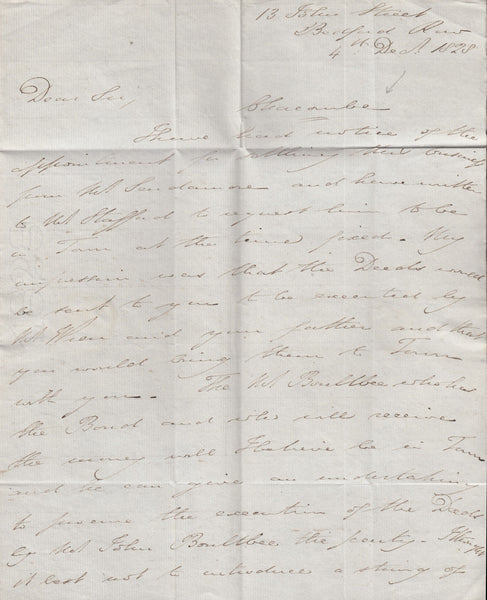 13 John Street
Bedford Row
4th Decr. 1828
Dear Sir,
Chacombe
I have had notice of the
appointment for settling this business
from Mr and have written
to Mr Stafford to request him to be
in Town at the time fixed. My
impression was that the Deeds would
be sent to you to be executed by
Mr and your father and that
you would bring them to Town
with you. The Mr Boultbee who has
the Bond and who will receive
the money will I believe be in Town
and he can give an undertaking
to procure the execution of the Deeds
by Mr John Boultbee the party. I thought
it best not to introduce a string of